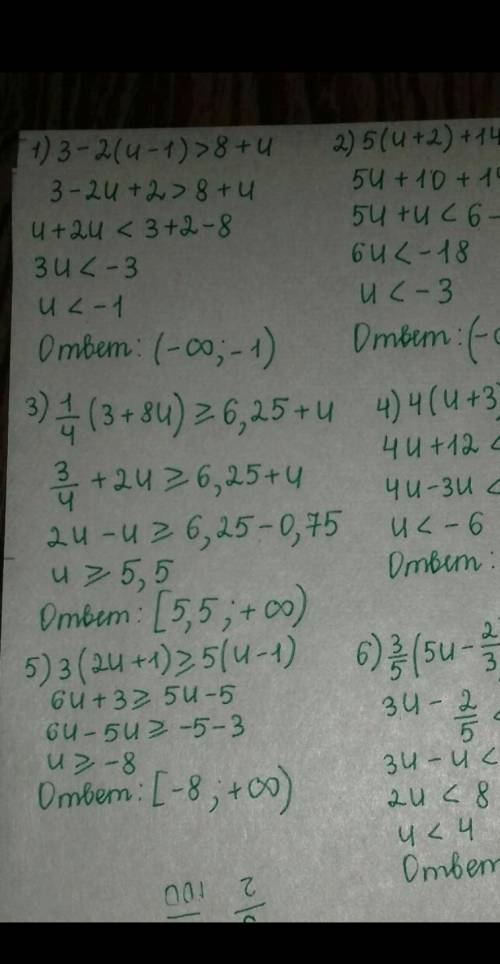 1) 3-2(u-1)>8+u
3-2u+2>8+u
u+2u < 3+2-8
3u < -3
u < -1
Ответ: (-∞; -1)
2) 5(u+2)+14
5u+10+14
5u+u < 6-
6u < -18
u < -3
Ответ: (-∞
3) 1/4 (3+8u) ≥ 6,25+u
3/4 + 2u ≥ 6,25+u
2u-u ≥ 6,25-0,75
u ≥ 5,5
Ответ: [5,5; +∞)
4) 4(u+3)
4u+12 <
4u-3u <
u < -6
Ответ:
5) 3(2u+1) ≥ 5(u-1)
6u+3 ≥ 5u-5
6u-5u ≥ -5-3
u ≥ -8
Ответ: [-8; +∞)
6) 3/5 (5u - 2/3
3u - 2/5 <
3u-u <
2u < 8
u < 4
Ответ